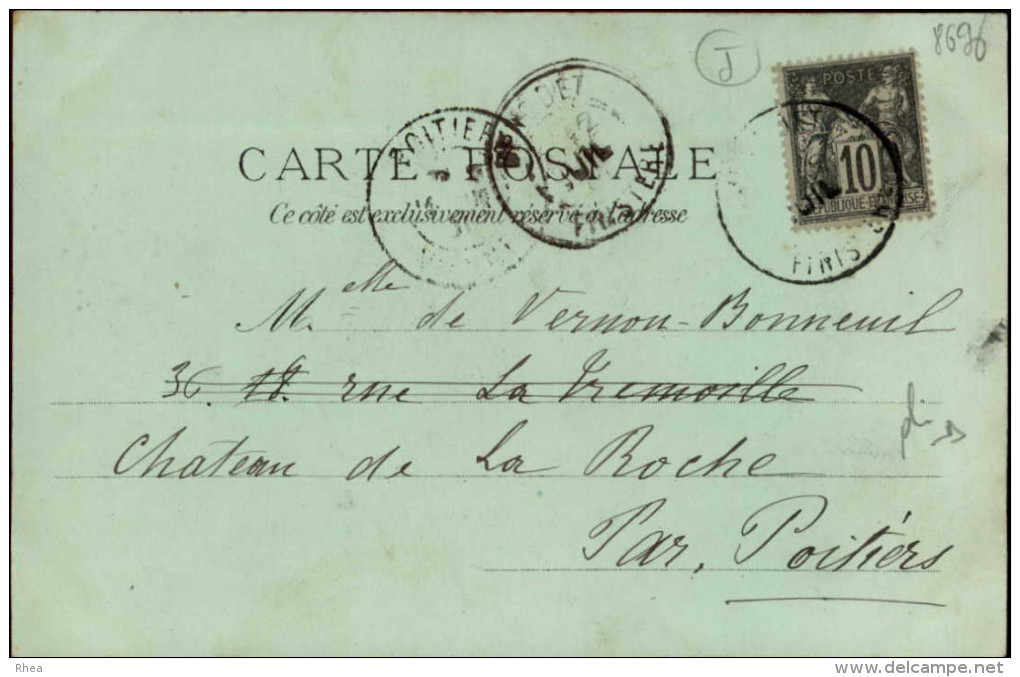 8696
J
POSTE
10
RÉPUBLIQUE FRANÇAISE
POITIERS
FINISTERE
JUIL
FINIS
CARTE POSTALE
Ce côté est exclusivement réservé à l'adresse
Melle de Vernon-Bonneuil
36. 18. rue La Tremoille
Chateau de La Roche
Par, Poitiers
pli
Rhea
www.delcampe.net